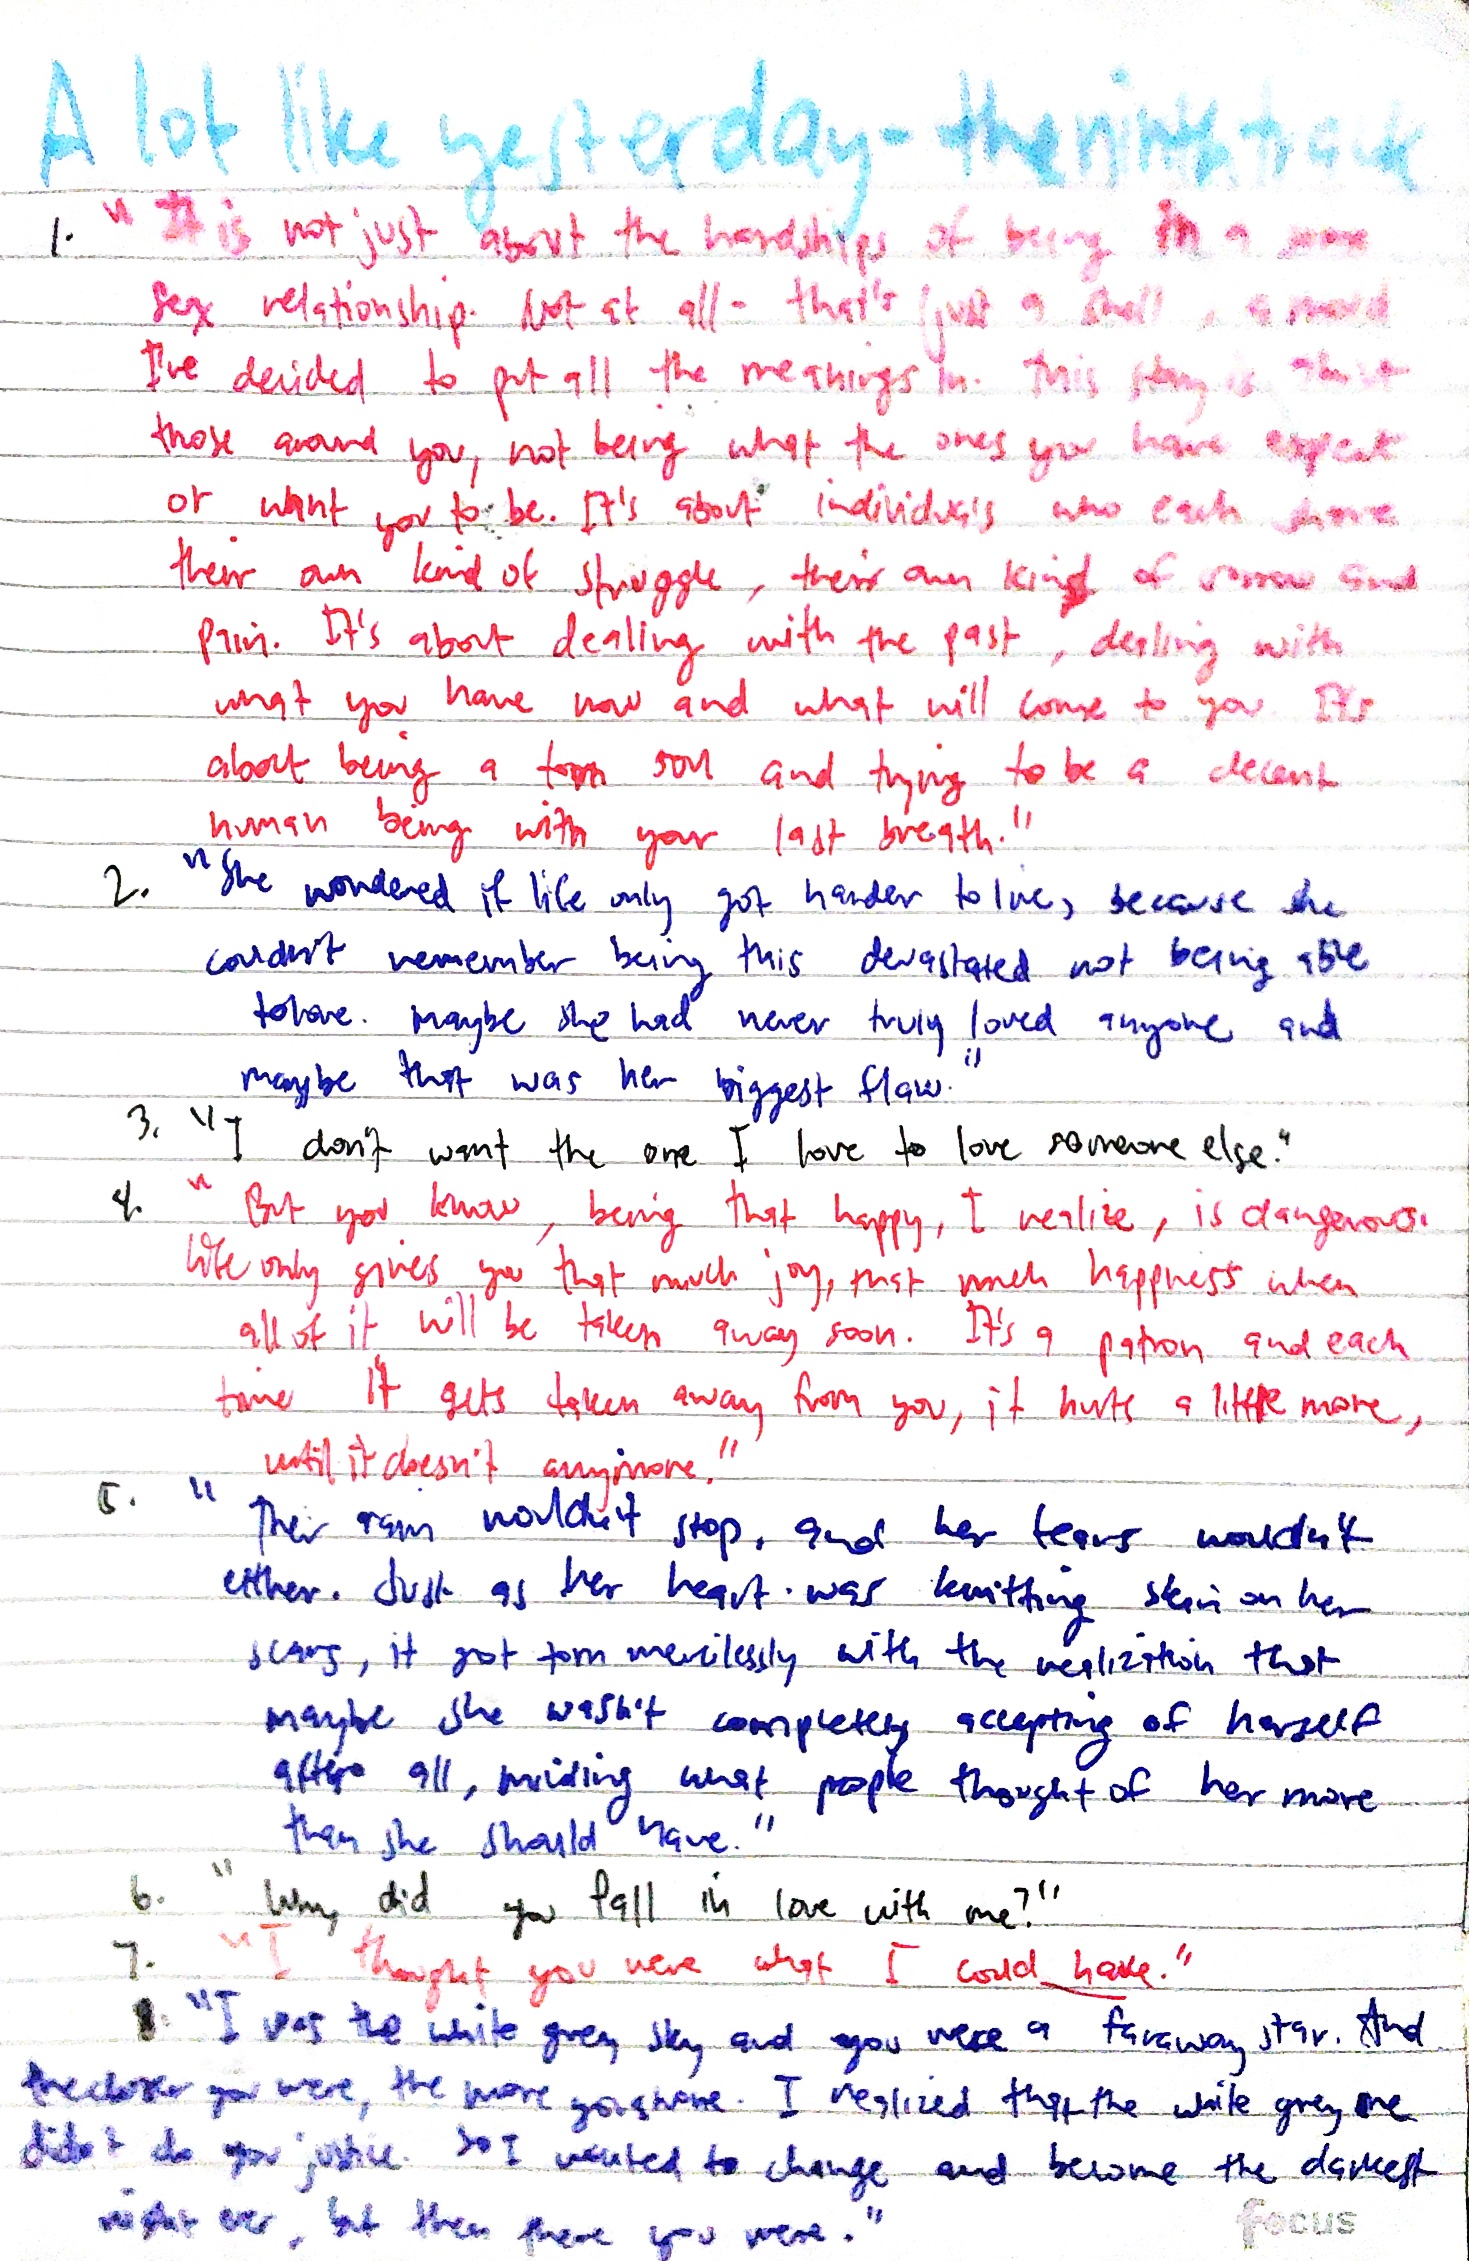 A lot like yesterday - theninthtrack
1. "It is not just about the hardships of being in a same
sex relationship. Not at all - that's just a small, a mold
I've decided to put all the meanings in. This story is about
those around you, not being what the ones you have expect
or want you to be. It's about individuals who each have
their own kind of struggle, their own kind of sorrow and
pain. It's about dealing with the past, dealing with
what you have now and what will come to you. It's
about being a torn soul and trying to be a decent
human being with your last breath."
2. "She wondered if life only got harder to live, because she
couldn't remember being this devastated not being able
to love. Maybe she had never truly loved anyone and
maybe that was her biggest flaw."
3. "I don't want the one I love to love someone else."
4. "But you know, being that happy, I realize, is dangerous.
Life only gives you that much joy, that much happiness when
all of it will be taken away soon. It's a patron and each
time it gets taken away from you, it hurts a little more,
until it doesn't anymore."
5. "Their rain wouldn't stop, and her tears wouldn't
either. Just as her heart was knitting skin on her
scars, it got torn mercilessly with the realization that
maybe she wasn't completely accepting of herself
after all, minding what people thought of her more
than she should have."
6. "Why did you fall in love with me?"
7. "I thought you were what I could have."
"I was the white grey sky and you were a faraway star. And
the closer you were, the more you shone. I realized that the white grey me
didn't do you justice. So I wanted to change and become the darkest
night ever, but then there you were."
focus